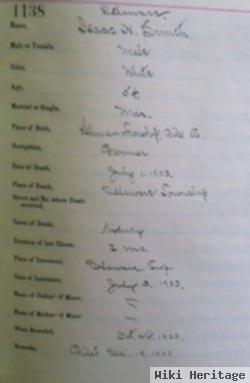 1138 Delaware
Name, Isaac N. Smith
Male or Female, Male
Color, White
Age, 54
Married or Single, Mar.
Place of Birth, Lehman Township Pike Co.
Occupation, Farmer
Date of Death, July 1, 1903.
Place of Death, Delaware Township
Street and No. where Death occurred,
Cause of Death, Kidney
Duration of last Illness, 2 mo.
Place of Interment, Delaware Twp.
Date of Interment, July 3, 1903.
Name of Father—if Minor "
Name of Mother—if Minor "
When Recorded, Oct. 1903.
Remarks, Filed Dec. 18, 1903.
Wiki Heritage